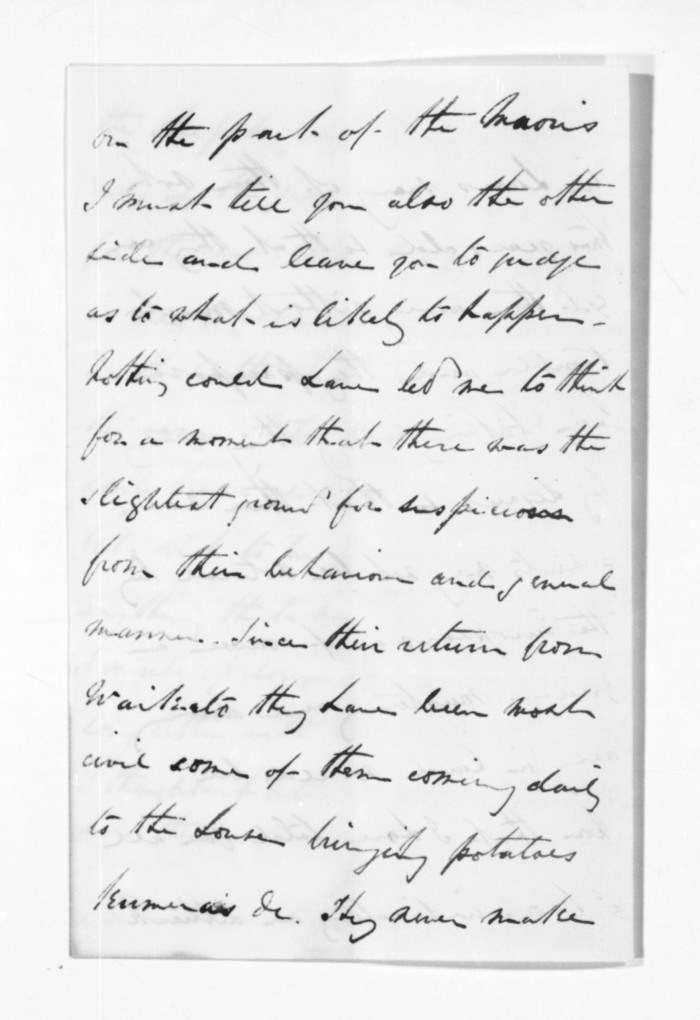 on the part of the Maoris
I must tell you also the other
side and leave you to judge
as to what is likely to happen -
Nothing could have led me to think
for a moment that there was the
slightest ground for suspicions
from their behaviour and general
manner. Since their return from
Waikato they have been most
civil some of them coming daily
to the house bringing potatoes
kumeras &c. They never make